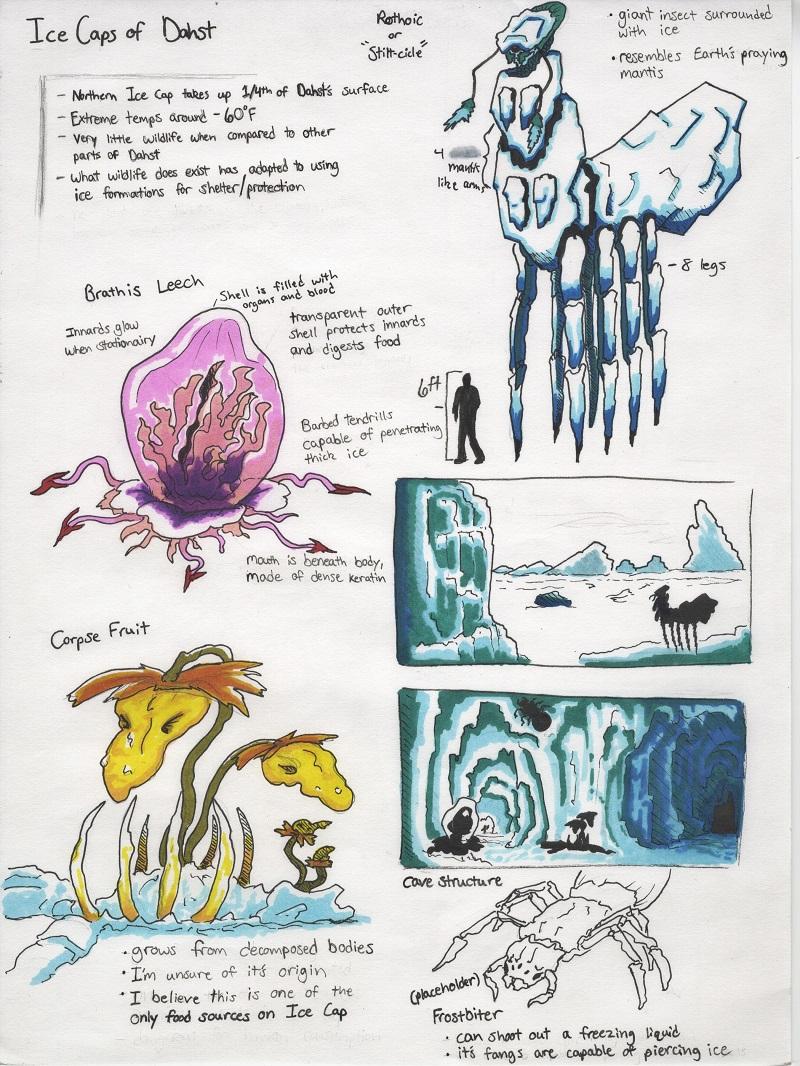 Ice Caps of Dahst
- Northern Ice Cap takes up 1/4th of Dahst's surface
- Extreme temps around -60°F
- Very little wildlife when compared to other
parts of Dahst
- What wildlife does exist has adapted to using
ice formations for shelter/protection
Rothoic
or
"Stilt-cicle"
• giant insect surrounded
with ice
• resembles Earth's praying
mantis
4
mantis
like arms
- 8 legs
6ft
Brathis Leech
Shell is filled with
organs and blood
Innards glow
when stationairy
transparent outer
shell protects innards
and digests food
Barbed tendrills
capable of penetrating
thick ice
Mouth is beneath body,
made of dense keratin
Corpse Fruit
• grows from decomposed bodies
• I'm unsure of it's origin
• I believe this is one of the
only food sources on Ice Cap
Cave Structure
(placeholder)
Frostbiter
• can shoot out a freezing liquid
• it's fangs are capable of piercing ice